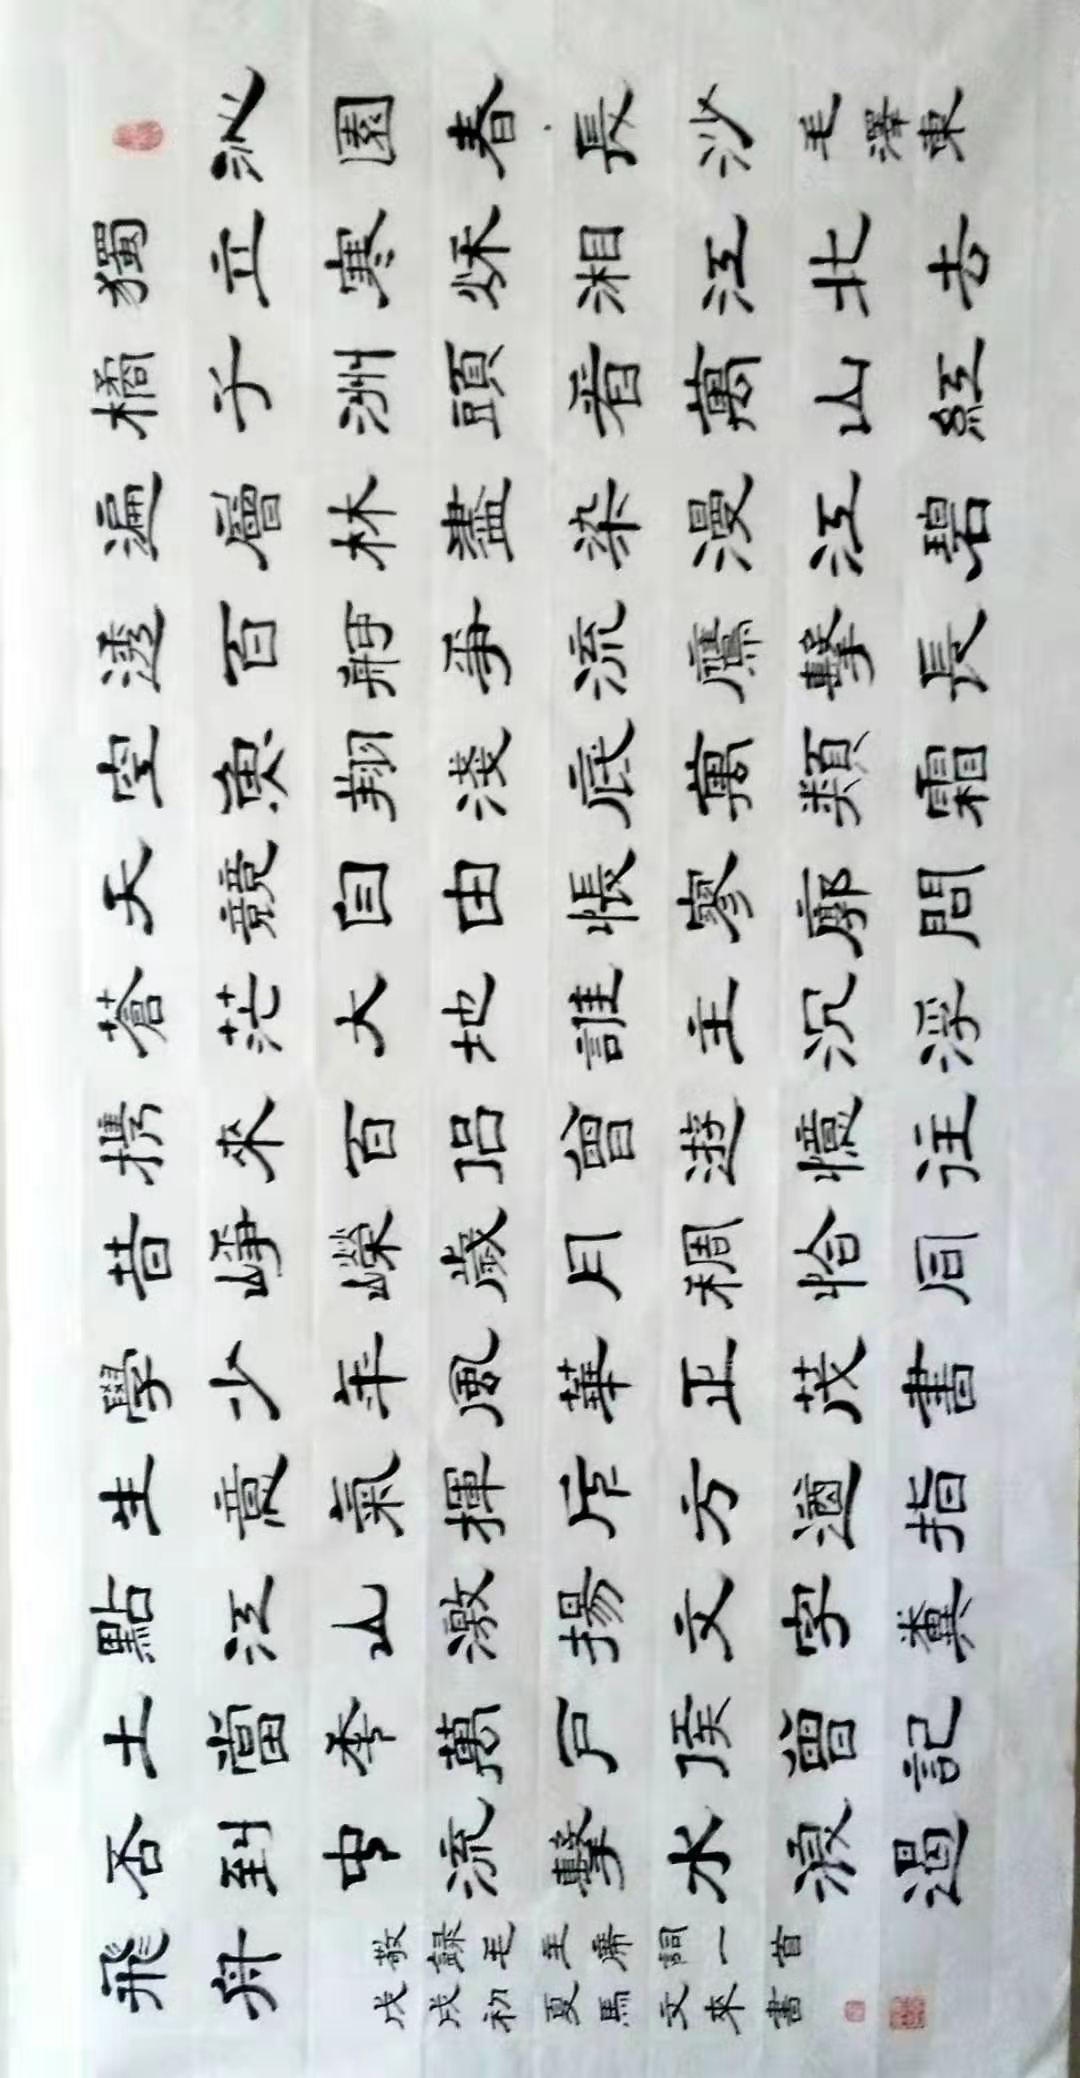 沁園春長沙毛澤東
獨立寒秌湘江北去
橘子洲頭看萬山紅
遍層林盡染漫江碧
透百舸爭流鷹擊長
空魚翔淺底萬類霜
天競自由悵寥廓問
蒼茫大地誰主沉浮
携來百侶曾遊憶往
昔崢嶸歲月稠恰同
學少年風華正茂書
生意氣揮斥方遒指
點江山激揚文字糞
土當秊萬戶侯曾記
否到中流擊水浪遏
飛舟
敬錄毛主席詞一首
戊戌初夏馬文來書